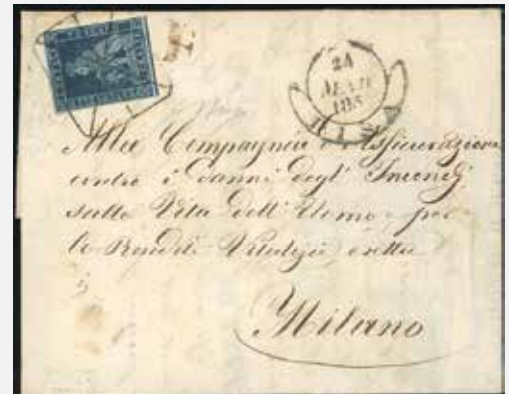 24
PISA
Alla Compagnia d'Assicurazione
contro i danni degl' Incendj
sulla Vita dell' Uomo, e per
le Rendite Vitalizie eretta
Milano